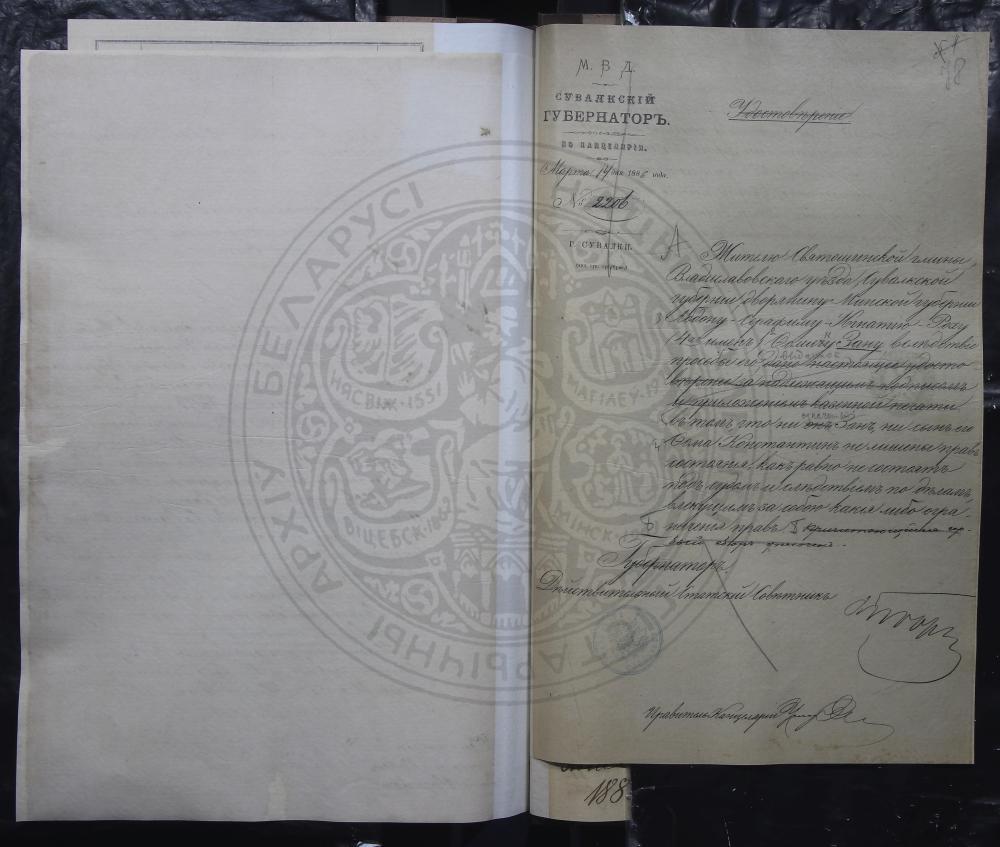 М. В. Д.
СУВАЛКСКІЙ
ГУБЕРНАТОРЪ.
ПО КАНЦЕЛЯРІИ.
Марта 14 дня 188 года.
№ 2206
Г. СУВАЛКИ.
Удостовѣреніе
Жителю Святошинской гмины,
Владиславовскаго уѣзда Сувалкской
губерніи дворянину Минской губерніи
Абдону-Серафиму-Игнатію-Роху
/4хъ именъ/ Зану вслѣдствіе
просьбы его дано настоящее удосто
вѣреніе за надлежащимъ подписомъ
съ приложеніемъ казенной печати
въ томъ, что ни онъ Занъ, ни сынъ его
Ѳома Константинъ не лишены правъ
состоянія, какъ равно не состоятъ
подъ судомъ и слѣдствіемъ по дѣламъ,
влекущимъ за собою какія либо огра
ниченія правъ
Губернаторъ,
Дѣйствительный Статскій Совѣтникъ
Правитель Канцеляріи
188
АРХІЎ БЕЛАРУСІ
НЯСВІЖ·1586
МАГІЛЕЎ·19
ВІЦЕБСК·186
МІНСК